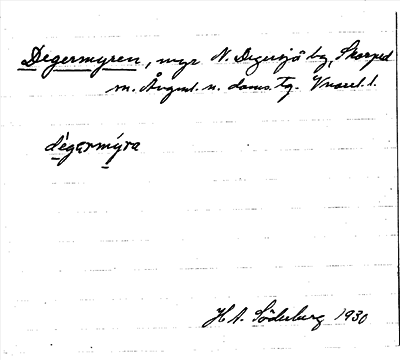 Degermyren, myr N. Degersjö by, Skorped
sn. Ångml. n. doms. tg. Vnorrl. l.
dégarmýra
H A. Söderberg 1930